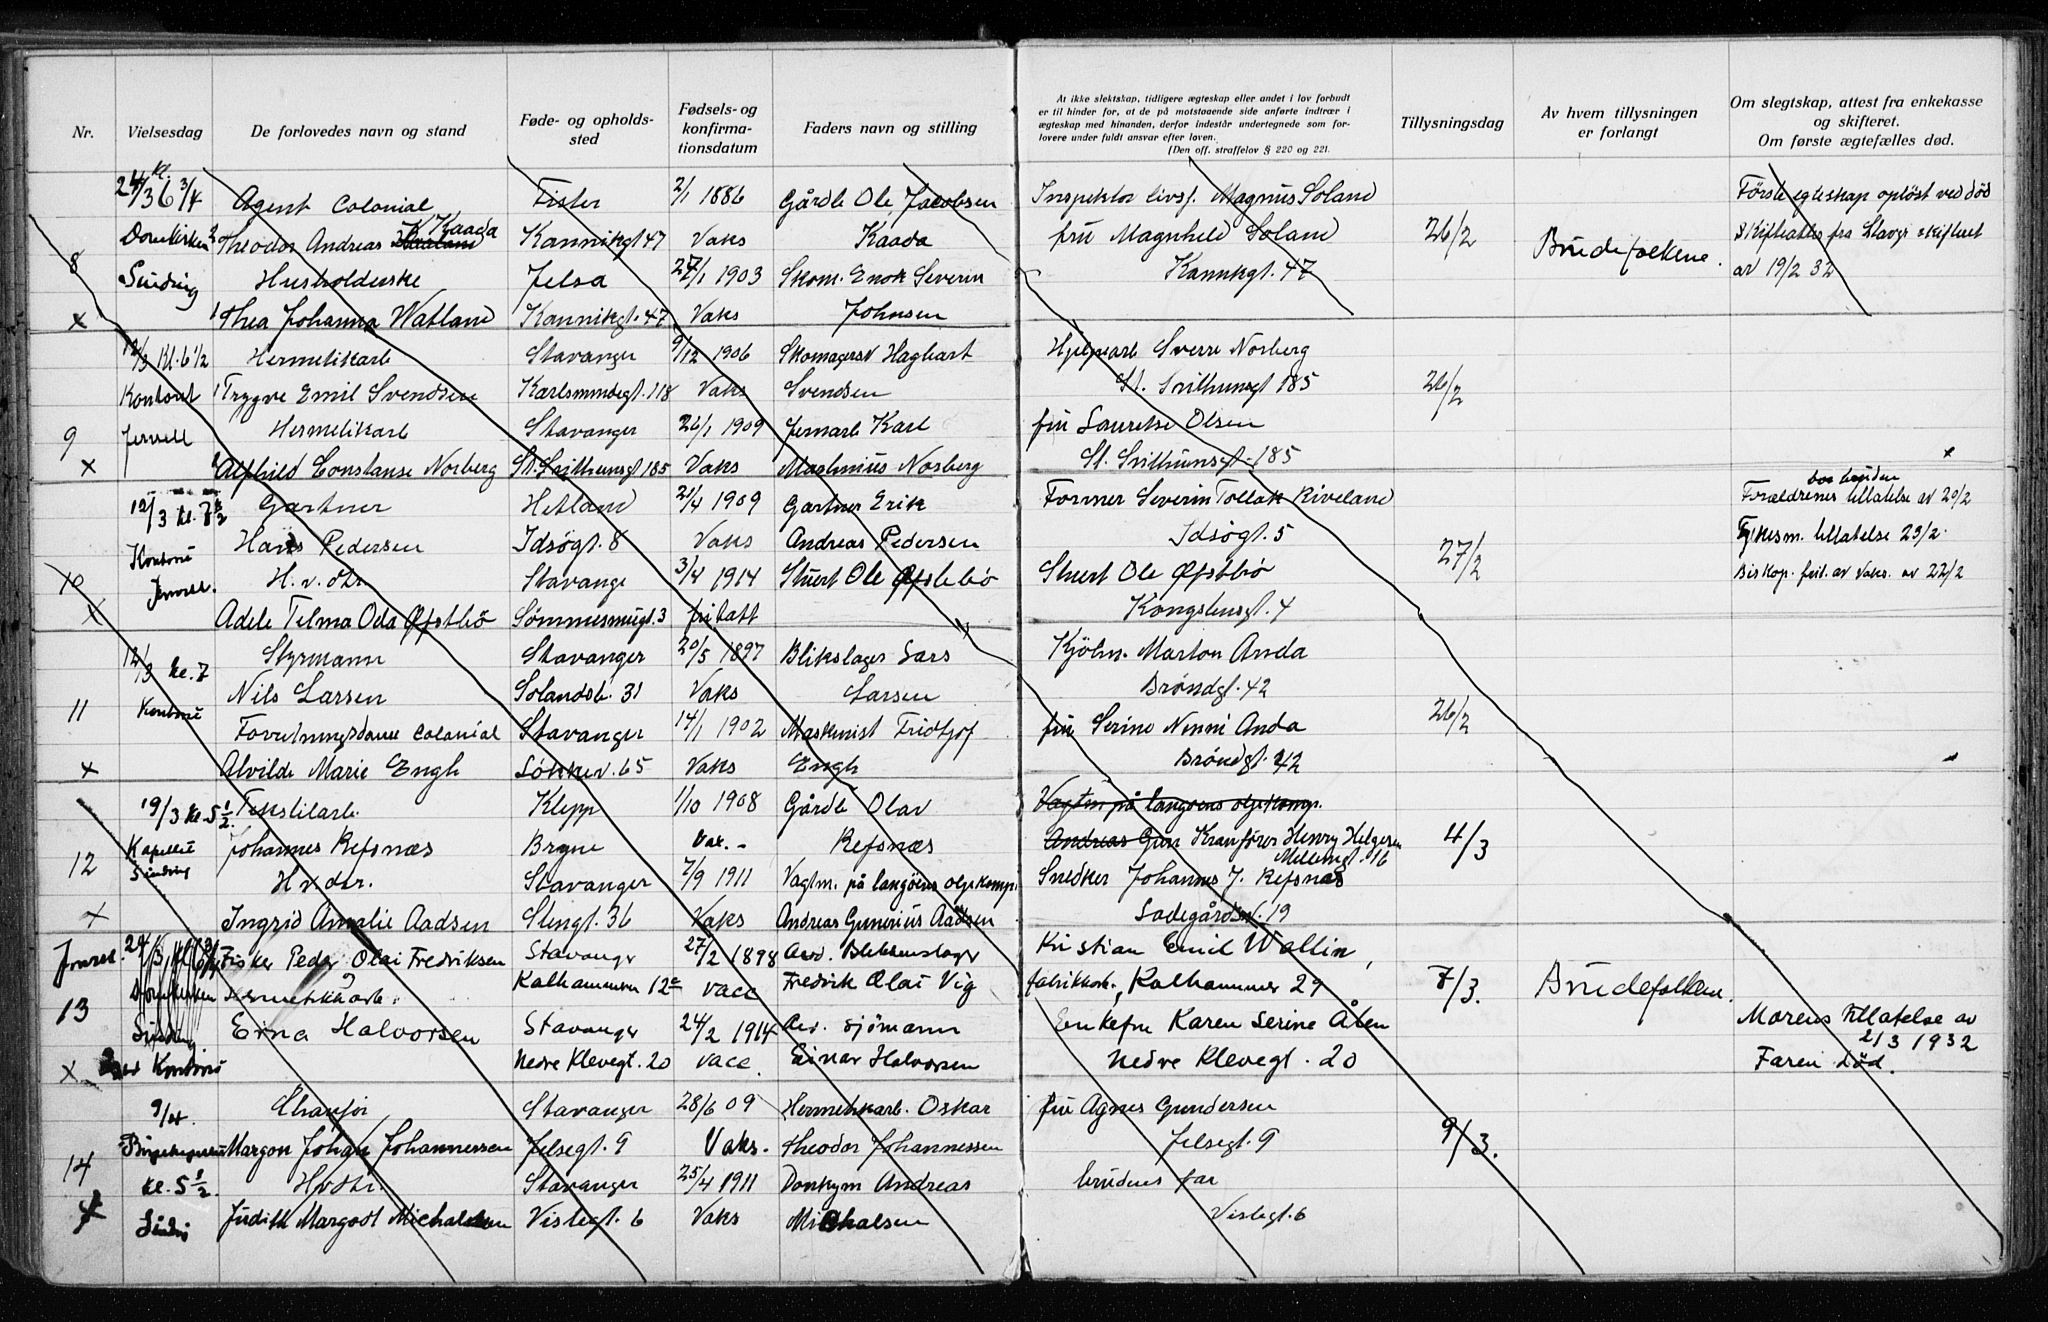 Nr.
Vielsesdag
De forlovedes navn og stand
Føde- og opholds-
sted
Fødsels- og
konfirma-
tionsdatum
Faders navn og stilling
At ikke slektskap, tidligere ægteskap eller andet i lov forbudt
er til hinder for, at de på motstaaende side anførte indtrær i
ægteskap med hinanden, derfor indestår undertegnede som for-
lovere under fuldt ansvar efter loven.
(Den off. straffelov § 220 og 221.
Tillysningsdag
Av hvem tillysningen
er forlangt
Om slegtskap, attest fra enkekasse
og skifteret.
Om første ægtefælles død.
24/3 kl. 6 3/4 Agent Colonial Fister 2/1 1886 Gårdb Ole Jacobsen Inspektør livsf. Magnus Soland Første egteskap opløst ved död
Domkirken Theodor Andreas K Kaada Kannikgt 47 Vaks Kaada fru Magnhild Soland 26/2 Brudefolkene. Skifteattes fra Stavgr skifteret
8 Sinding Husholderske Jelsa 27/1 1903 Skom. Enok Severin Kannkgt. 47 av 19/2 32
x Thea Johanna Watland Kannikgt. 47 Vaks Johnsen
12/3 Kl. 6 1/2 Hermetikarb Stavanger 9/12 1906 Skomagersv Hagbart Hjelpearb Sverre Norberg
Kontoret Trygve Emil Svendsen Karlsmindegt. 118 Vaks Svendsen St. Svithunsgt 185 26/2
9 Jervell Hermetikarb Stavanger 26/1 1909 Jernarb Karl fru Lauritse Olsen
x Alfhild Constanse Norberg St. Svithunsgt 185 Vaks Martinius Norberg St. Svithunsgt. 185
12/3 kl. 7 1/2 Gartner Hetland 20/4 1909 Gartner Erik Former Severin Tollak Riveland Forældrenes tillatelse av 20/2
Kontoret Hans Pedersen Idsøgt. 8 Vaks Andreas Pedersen Idsøgt. 5 27/2 Fylkesm. tillatelse 23/2.
10 Jervell. H. v. dtr. Stavange 3/4 1914 Stuert Ole Øfstebø Stuert Ole Øfstbø Biskop. av Vaks. av 22/2
x Adele Telma Oda Øfstbö Sømmesmugt. 3 fritatt Kongstensgt. 4
12/3 kl. 7 Styrmann Stavanger 20/5 1897 Blikslager Lars Kjöbm. Marton Anda
Nils Larsen Solandsb. 31 Vaks Larsen Brøndgt. 42
11 Kontoret Forretningsdame Colonial Stavanger 14/1 1902 Maskinist Fridtjof fru Serine Nenni Anda 26/2
x Alvilde Marie Engh Løkkev. 65 Vaks Engh Brøndgt. 42
19/3 kl. 5 1/2. Tekstilarb. Klepp 1/10 1908 Gårdb Olav Vagtm på langøens oljekomp.
12 Kapellet Johannes Refsnæs Bryne Vax. - Refsnæs Andreas Gun Kranfører Henry Helgesen 4/3
Møllengt. 16
Sinding H v dtr. Stavanger 7/9 1911 Vagtm. på langöens oljekomp. Snedker Johannes J. Refsnæs
x Ingrid Amalie Aadsen Stengt. 36 Vaks Andreas Gunerius Aadsen Ladegårdsv. 19
24/3 Fisker Peder Olai Fredriksen Stavanger 27/2 1898 Avd. Blekkenslager Kristian Emil Wallin,
13 Domkirken Hermetikkarb. Kalhammeren 12c vacc Fredrik Olai Vig fabrikkarb., Kalhammer 29 7/3. Brudefolkene.
Erna Halvorsen Stavanger 24/2 1914 Avd. sjömann Enkefru Karen Serine Ålen Morens tillatelse av
21 3 1932
x Kontoret Nedre Klevegt. 20 vacc. Einar Halvorsen Nedre Klevegt. 20 Faren död.
9/4. Chauför Stavanger 28/6 09 Hermetikarb. Oskar fru Agnes Gundersen
14 Margon Johan Johannessen Jelsegt. 9 Vaks. Theodor Johannessen Jelsegt. 9 9/3.
kl. 5 1/2. Hvdtr. Stavanger 25/4 1911 Donkym Andreas brudens far
x Judith Margodt Michalsen Vistegt. 6 Vaks Michalsen Vistegt. 6